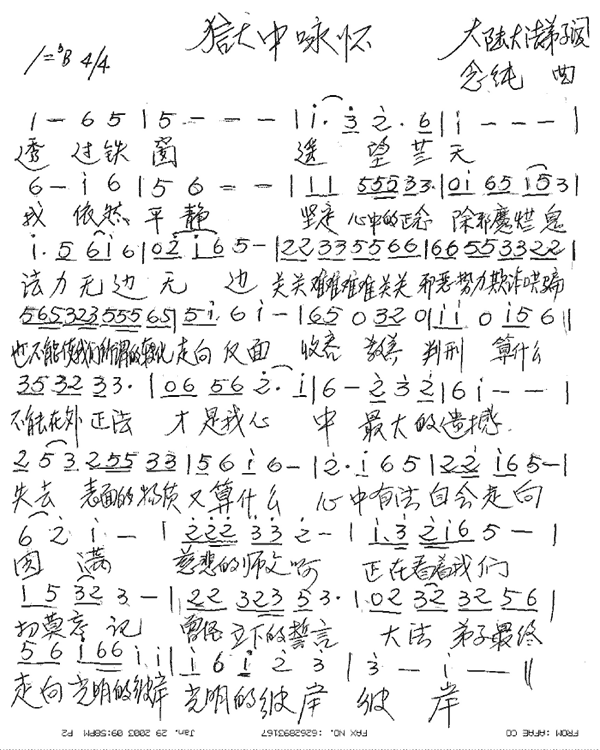 獄中咏怀
1=ᵇB 4/4
大陆大法弟子词
念纯 曲
1 - 6 5 | 5 - - - | i. 3 2. 6 | i - - - |
透 过铁 窗 遥 望 苍 天
6 - i 6 | 5 6 - - | 1 1 555 33. | 0i 65 i53 |
我 依然 平 静 坚定 心中的正念 除邪魔烂鬼
i. 5 6i6 | 02 i65 - | 22335566 | 66553322 |
法力无边 无 边 关关难难难难关关 邪恶势力欺诈哄骗
565323555 65 | 5i. 6 i - | 65 0 32 0 | ii 0 i5 6 ||
也不能使我们所谓的转化走向反面 收容 教养 判刑 算什么
35 32 33. | 06 56 2. i | 6 - 2 3 2 | 6 i - - |
不能在外正法 才是我心 中 最大的遗憾.
2 5 3 255 33 | 56 i 6 - | 2. i 6 5 | 22 i65 - |
失去 表面的物质又算什么 心中有法自会走向
6 2 i - | 222 33 2 - | i. 3 2i6 5 - |
圆 满 慈悲的师父啊 正在看着我们
1 5 32 3 - | 22 323 5 3. | 02 32 32 5 6 |
切莫忘 记 曾经立下的誓言 大法 弟子最终
5 6 i66 i i || i 6 i 2 3 | 3 - i - - ||
走向光明的彼岸 光明的彼岸 彼 岸
FROM : AFAE CO FAX NO. : 6262893167 Jan. 29 2003 09:58PM P2